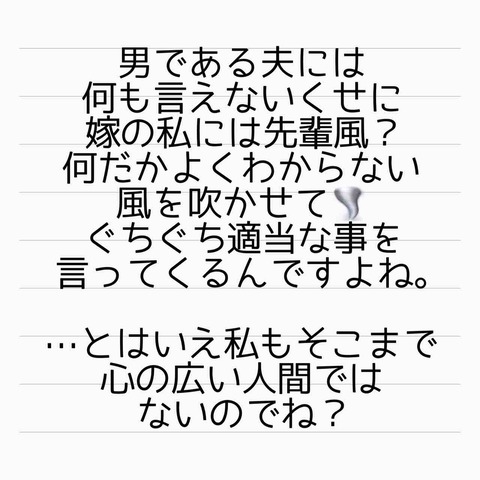 男である夫には
何も言えないくせに
嫁の私には先輩風？
何だかよくわからない
風を吹かせて🌪
ぐちぐち適当な事を
言ってくるんですよね。
…とはいえ私もそこまで
心の広い人間では
ないのでね？